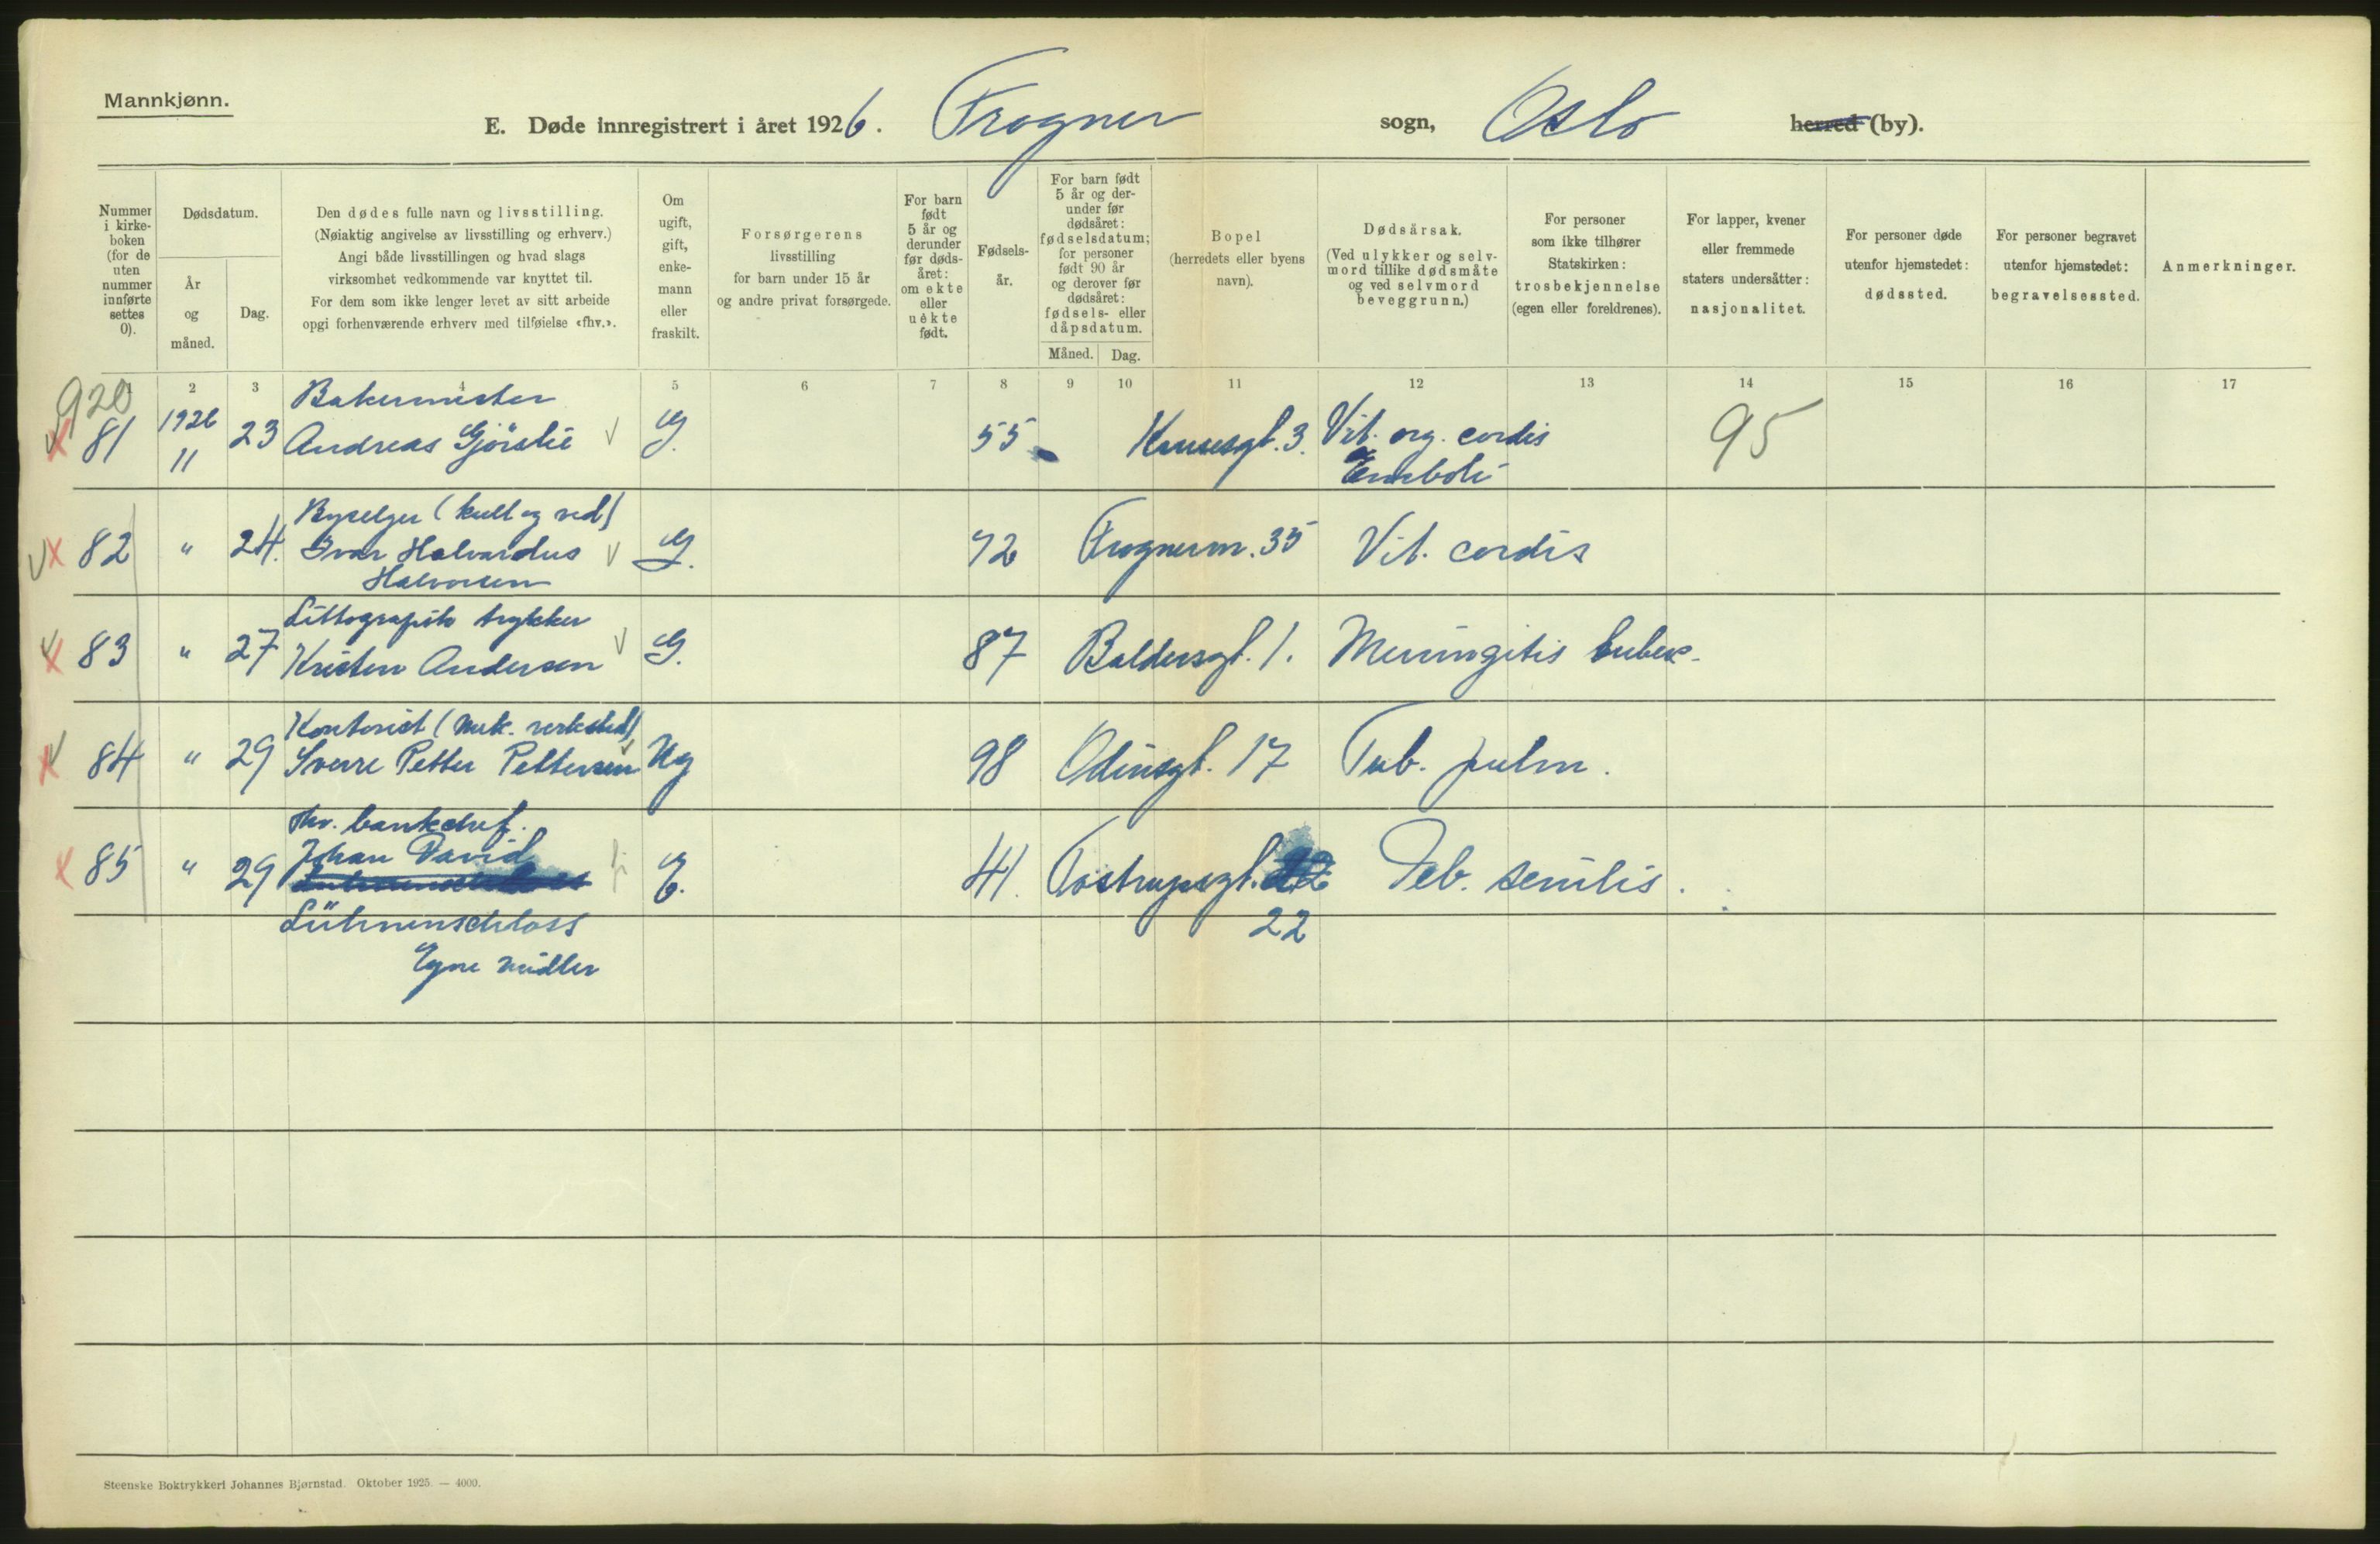 Mannkjønn.
E. Døde innregistrert i året 1926. Frogner sogn, Oslo herred (by).
Nummer i kirke-boken (for de uten nummer innførte settes 0).
Dødsdatum.
År og måned.
Dag.
Den dødes fulle navn og livsstilling.
(Nøiaktig angivelse av livsstilling og erhverv.)
Angi både livsstillingen og hvad slags
virksomhet vedkommende var knyttet til.
For dem som ikke lenger levet av sitt arbeide
opgi forhenværende erhverv med tilføielse «fhv.».
Om ugift, gift, enke-mann eller fraskilt.
Forsørgerens
livsstilling
for barn under 15 år
og andre privat forsørgede.
For barn født 5 år og derunder før døds-året: om ekte eller uekte født.
Fødsels-år.
For barn født 5 år og der-under før dødsåret: fødselsdatum; for personer født 90 år og derover før dødsåret: fødsels- eller dåpsdatum.
Måned. Dag.
Bopel
(herredets eller byens
navn).
Dødsårsak.
(Ved ulykker og selv-
mord tillike dødsmåte
og ved selvmord
beveggrunn.)
For personer
som ikke tilhører
Statskirken:
trosbekjennelse
(egen eller foreldrenes).
For lapper, kvener
eller fremmede
staters undersåtter:
nasjonalitet.
For personer døde
utenfor hjemstedet:
dødssted.
For personer begravet
utenfor hjemstedet:
begravelsessted.
Anmerkninger.
1 2 3 4 5 6 7 8 9 10 11 12 13 14 15 16 17
920
Bakermester
81 1926 11 23 Andreas Gjörslie G. 55 3. Vit. org. cordis 95
Emboli
(kull og ved)
82 " 24. Ivar Halvardus G. 72 Frognerv. 35 Vit. cordis
Halvorsen
Littografisk trykker
83 " 27 Kristen Andersen G. 87 Baldersgt. 1. Meningitis tuberc.
Kontorist (Mek. verksted)
84 " 29 Sverre Petter Pettersen Ug 98 Odinsgt. 17 Tub. pulm.
fhv. bankchef.
85 " 29 Johan David E. 41. Tostrupsgt. Deb. senilis.
Lühnenschloss 22
Egne midler
Steenske Boktrykkeri Johannes Bjørnstad. Oktober 1925. — 4000.